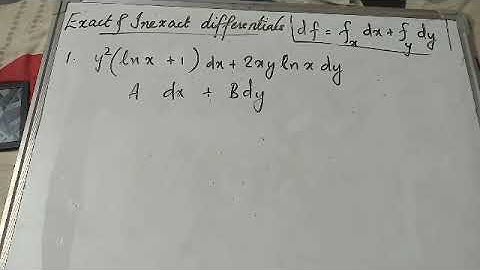 Exact & Inexact differentials | df = f_x dx + f_y dy |
1. y²(ln x + 1) dx + 2xy ln x dy
A dx + B dy